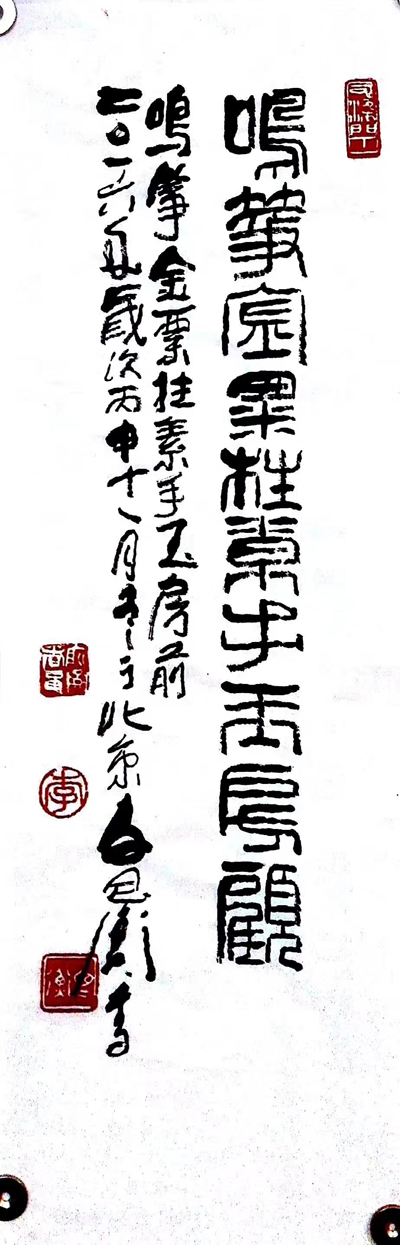 鳴箏金粟柱素手玉房顧
鳴箏金粟柱素手玉房前
二〇一六年歲次丙申十一月于北京
李